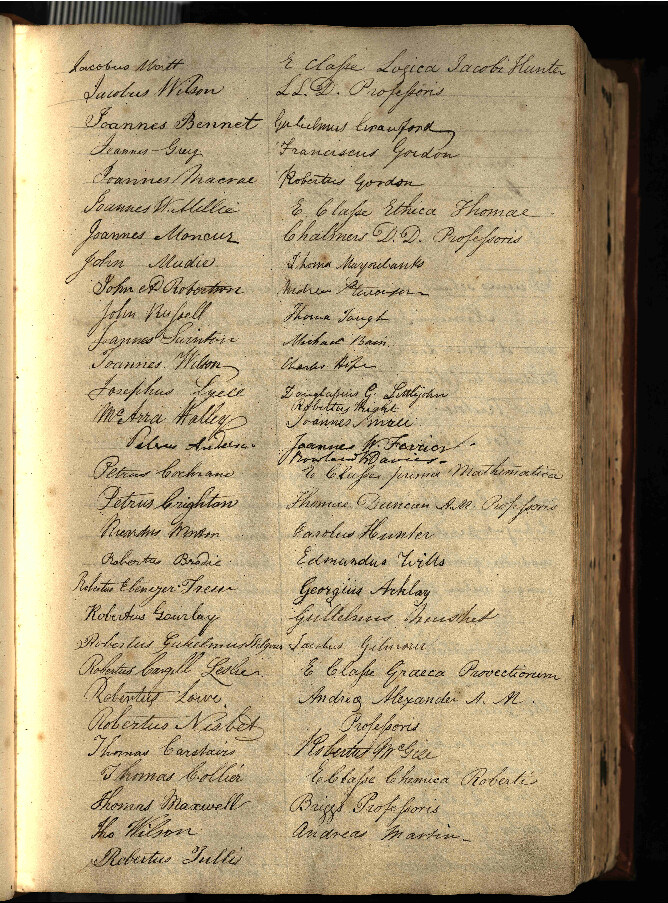 Jacobus Watt
Jacobus Wilson
Joannes Bennet
Joannes Greig
Joannes Macrae
Joannes W. Millie
Joannes Moncur
John Mudie
John A Robertson
John Russell
Joannes Swinton
Joannes Wilson
Josephus Lyell
McArra Halley
Petrus Anderson
Petrus Cochrane
Petrus Crighton
Ricardus
Robertus Brodie
Robertus Ebenezer Trew
Robertus Gourlay
Robertus Gulielmus
Robertus Cargill Leslie
Robertus Lowe
Robertus Nisbet
Thomas Carstairs
Thomas Collier
Thomas Maxwell
Tho Wilson
Robertus Tullis
E Classe Logica Jacobi Hunter
LL.D. Professoris
Gulielmus Crawford
Franciscus Gordon
Robertus Gordon
E Classe Ethica Thomae
Chalmers D.D. Professoris
Thoma Marjoribanks
Andrew
Thoma
Michael Bain
Charles Hope
Douglassius G. Littlejohn
Robertus Wright
Joannes Small
Joannes W. Ferrier
Rowland Davies
E Classe prima Mathematica
Thomae Duncan A.M. Professoris
Carolus Hunter
Edmundus Wills
Georgius
Gulielmus
Jacobus Gilmour
E Classe Graeca Provectiorum
Andreae Alexander A. M.
Professoris
Robertus McGie
E Classe Chimica Roberti
Briggs Professoris
Andreas Martin